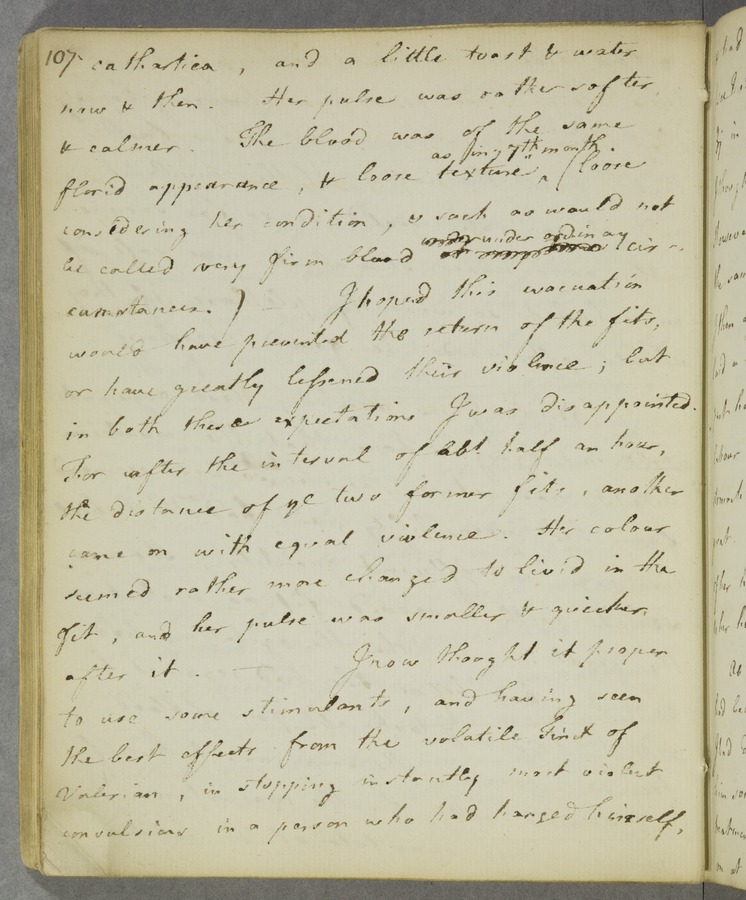 107
cathartica, and a little toast & water
now & then. Her pulse was rather softer,
& calmer. The blood was of the same
as in 7th month.
florid appearance, & loose texture ‸ (loose
considering her condition, & such as would not
under ordinary
be called very firm blood cir-
cumstances.) — I hoped this evacuation
would have prevented the return of the fits,
or have greatly lessened their violence; but
in both these expectations I was disappointed.
For after the interval of abt half an hour,
the distance of ye two former fits, another
came on with equal violence. Her colour
seemed rather more changed to livid in the
fit, and her pulse was smaller & quicker
after it. — I now thought it proper
to use some stimulants, and having seen
the best effects from the volatile Tinct of
Valerian, in stopping instantly most violent
convulsions in a person who had hanged himself,